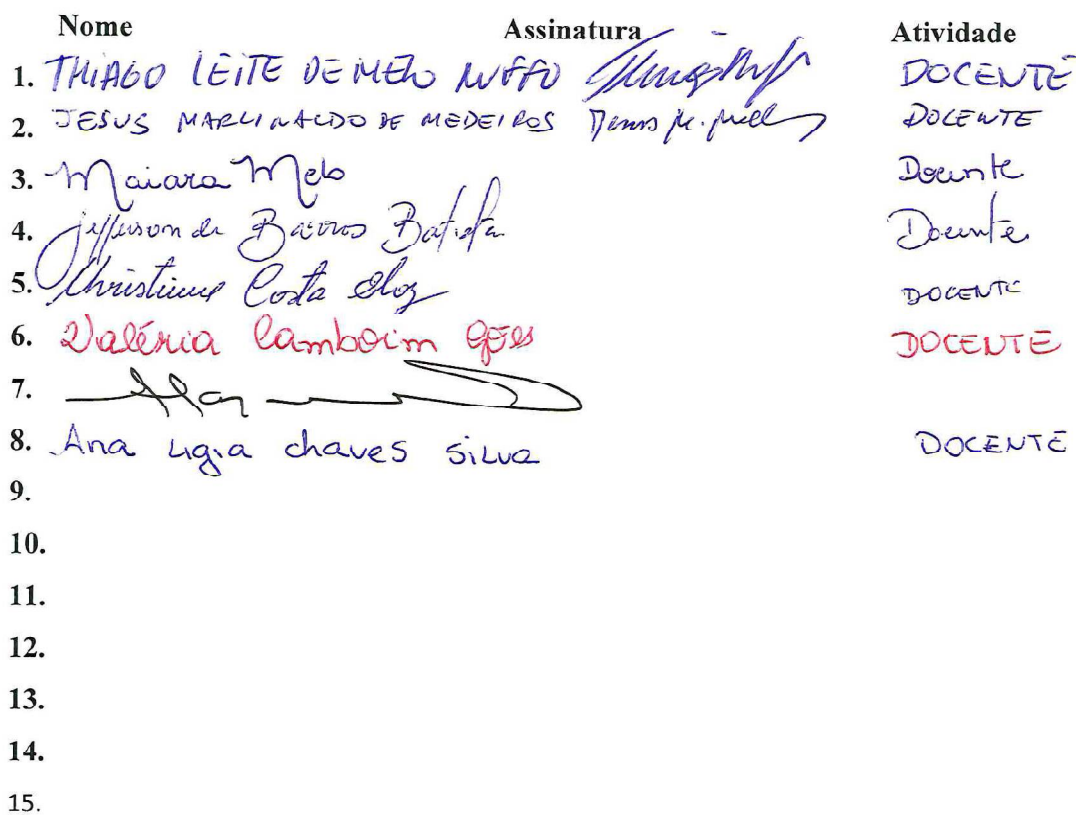 Nome Assinatura Atividade
1. THIAGO LEITE DE MELO RUFFO DOCENTE
2. JESUS MARLINALDO DE MEDEIROS DOCENTE
3. Maiara Melo Docente
4. Jefferson de Barros Batista Docente
5. Christianne Costa DOCENTE
6. Valéria Camboim Góes DOCENTE
7.
8. Ana Ligia chaves silva DOCENTE
9.
10.
11.
12.
13.
14.
15.